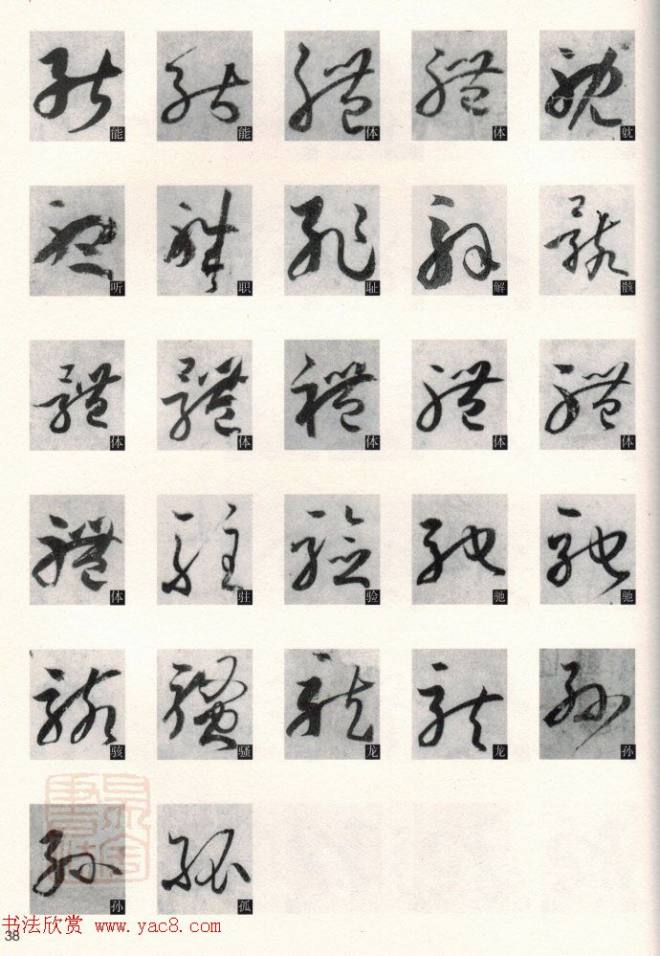 能 能 体 体 耽
听 职 耻 解 骸
体 体 体 体 体
体 驻 验 驰 驰
骇 骚 龙 龙 孙
孙 孤
书法欣赏 www.yac8.com
38